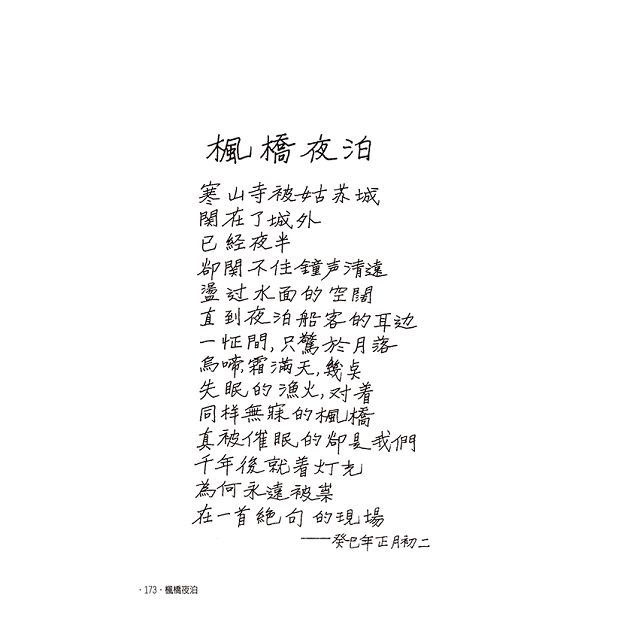 楓橋夜泊
寒山寺被姑苏城
関在了城外
已経夜半
卻関不住鐘声清遠
盪过水面的空闊
直到夜泊船客的耳边
一怔間,只驚於月落
烏啼,霜滿天,幾点
失眠的漁火,对着
同样無寐的楓橋
真被催眠的卻是我們
千年後就着灯光
為何永遠被祟
在一首絕句的現場
——癸巳年正月初二
·173·楓橋夜泊